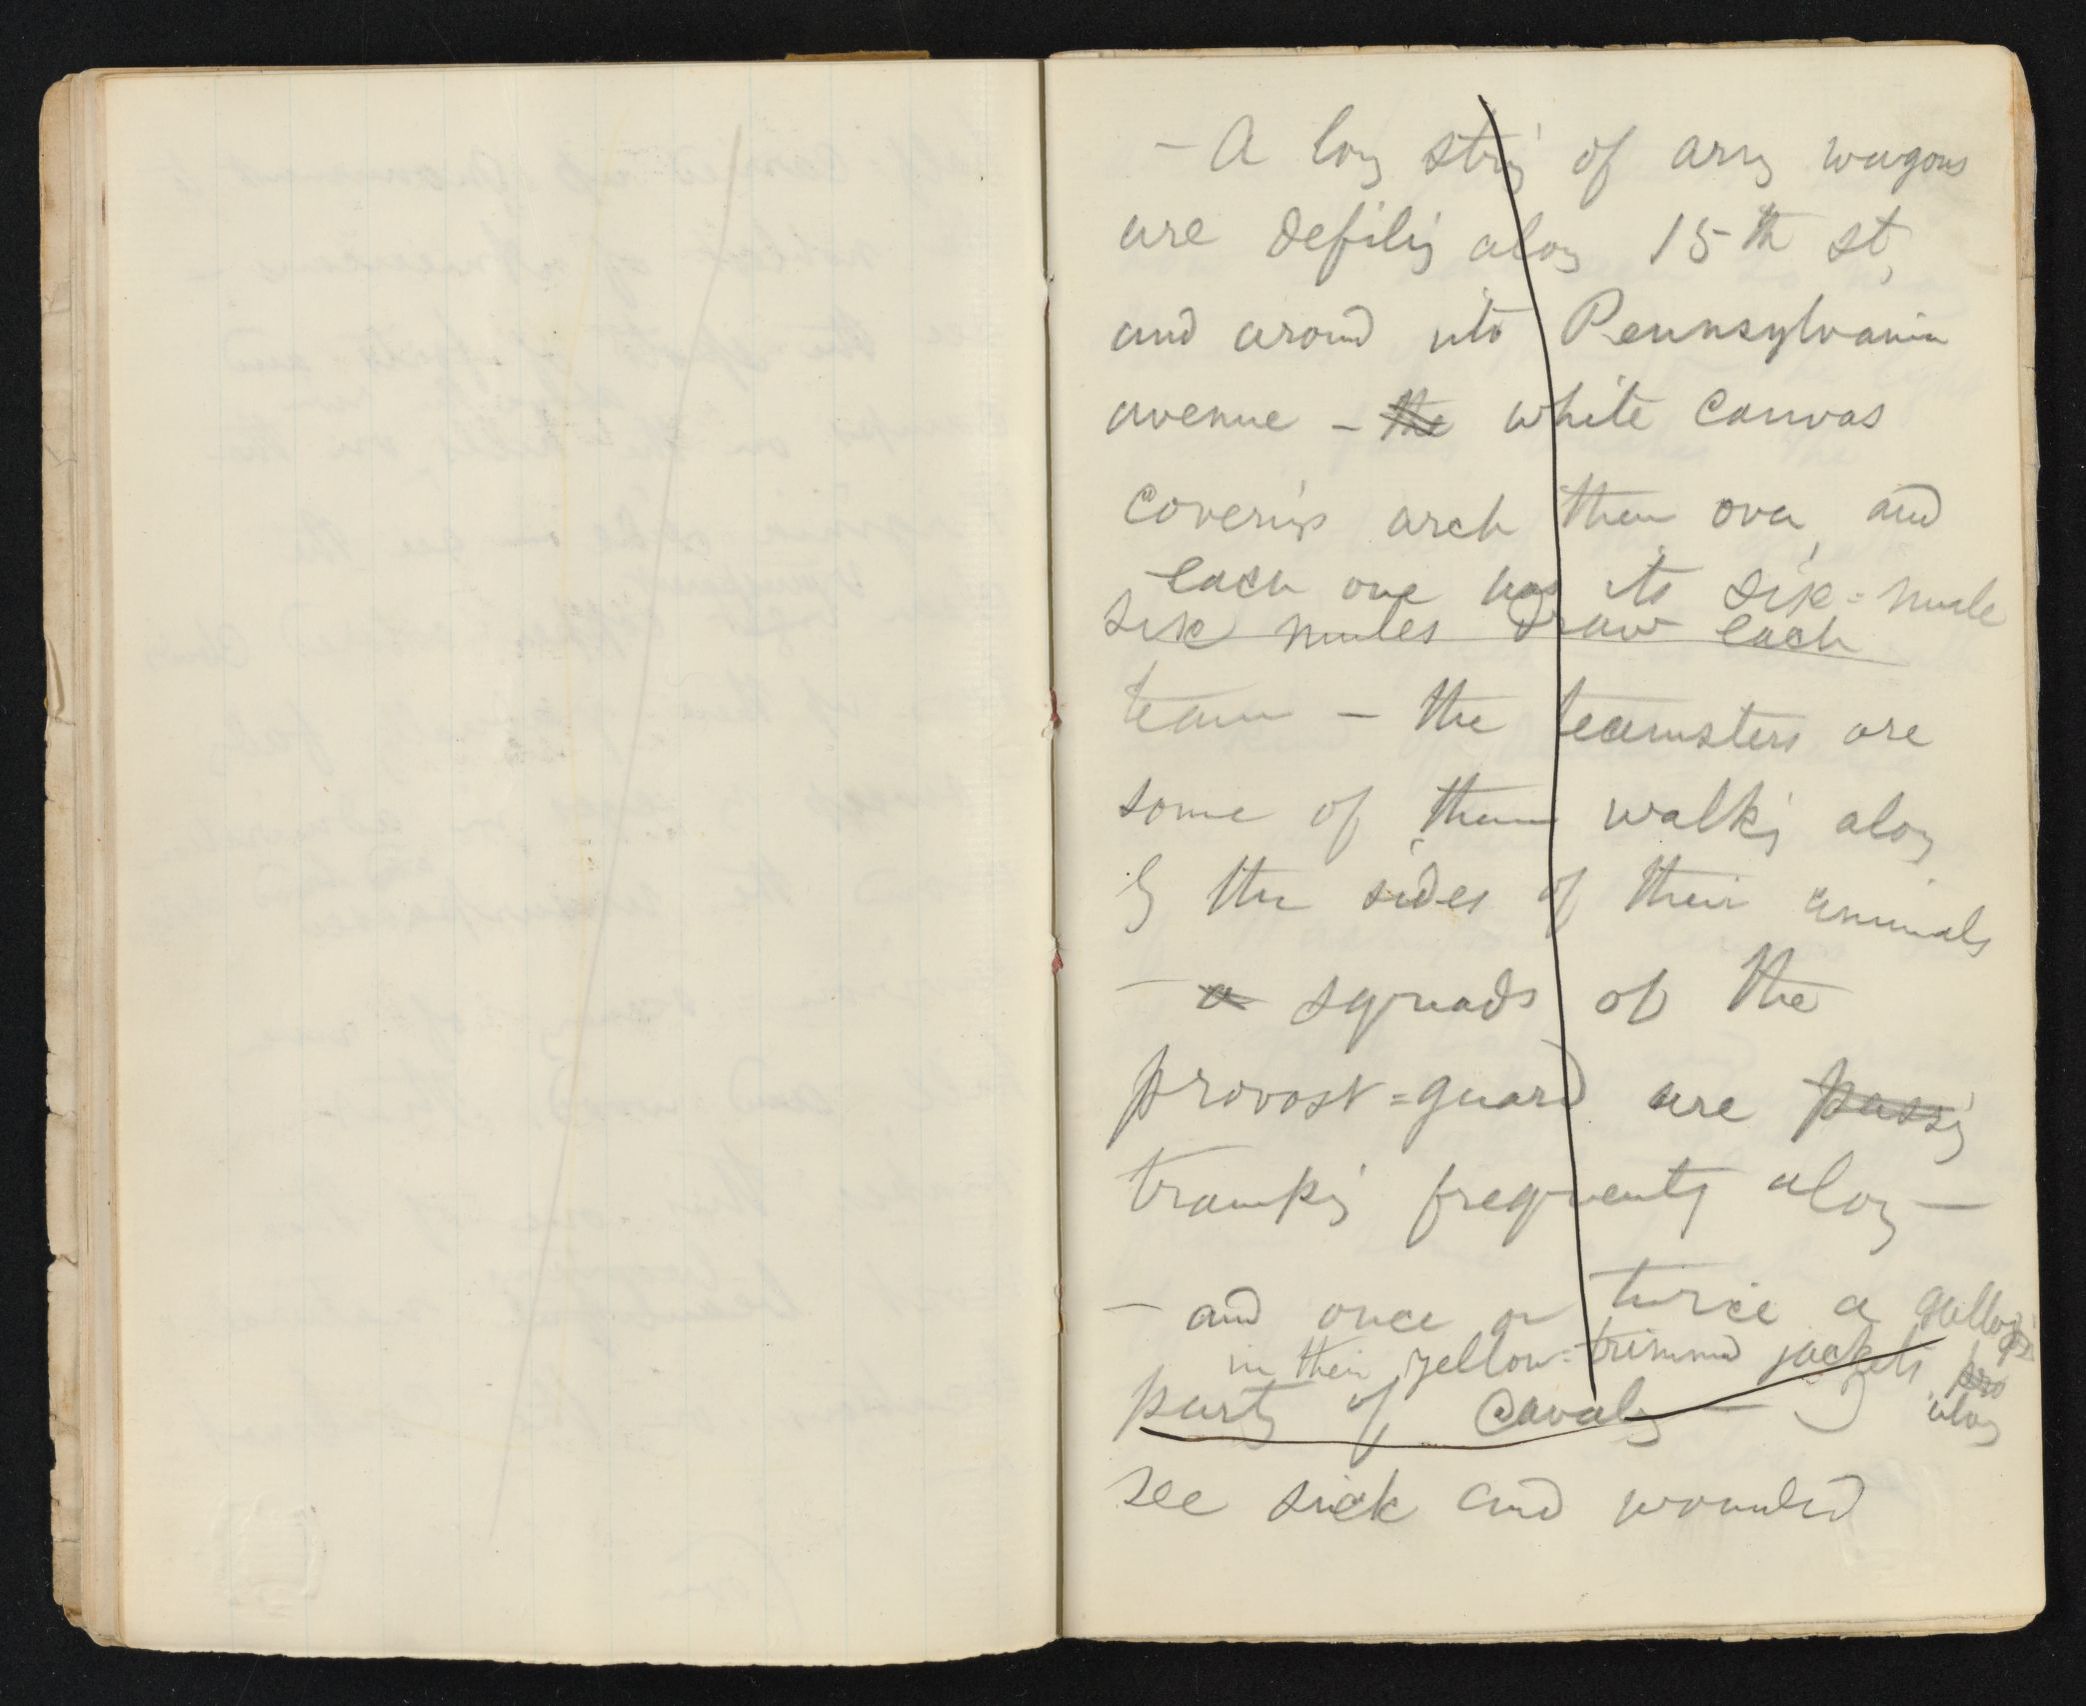 — A long string of army wagons
are defiling along 15th st,
and around into Pennsylvania
avenue — the white canvas
coverings arch them over, and
each one has its six-mule
six mules draw each
team — the teamsters are
some of them walking along
by the sides of their animals
— a squads of the
provost-guard are passing
tramping frequently along —
— and once or twice a galloping
in their yellow-trimmed jackets
party of cavalry —
along
see sick and wounded